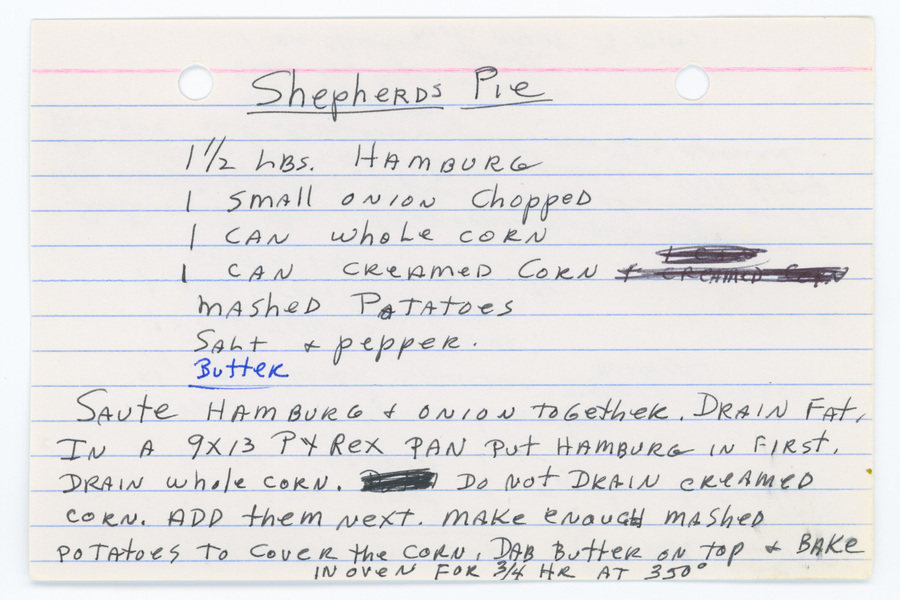 Shepherds Pie
1 1/2 LBS. HAMBURG
1 SMALL ONION Chopped
1 CAN whole CORN
1 CAN CREAMED CORN
MASHED PATATOES
SALT & pepper.
Butter
SAUTE HAMBURG & ONION TOGETHER. DRAIN FAT,
IN A 9X13 PYREX PAN PUT HAMBURG IN FIRST.
DRAIN whole CORN. DO NOT DRAIN CREAMED
CORN. ADD them NEXT. MAKE ENOUGH MASHED
POTATOES TO COVER the CORN. DAB BUTTER ON TOP & BAKE
IN OVEN FOR 3/4 HR AT 350°